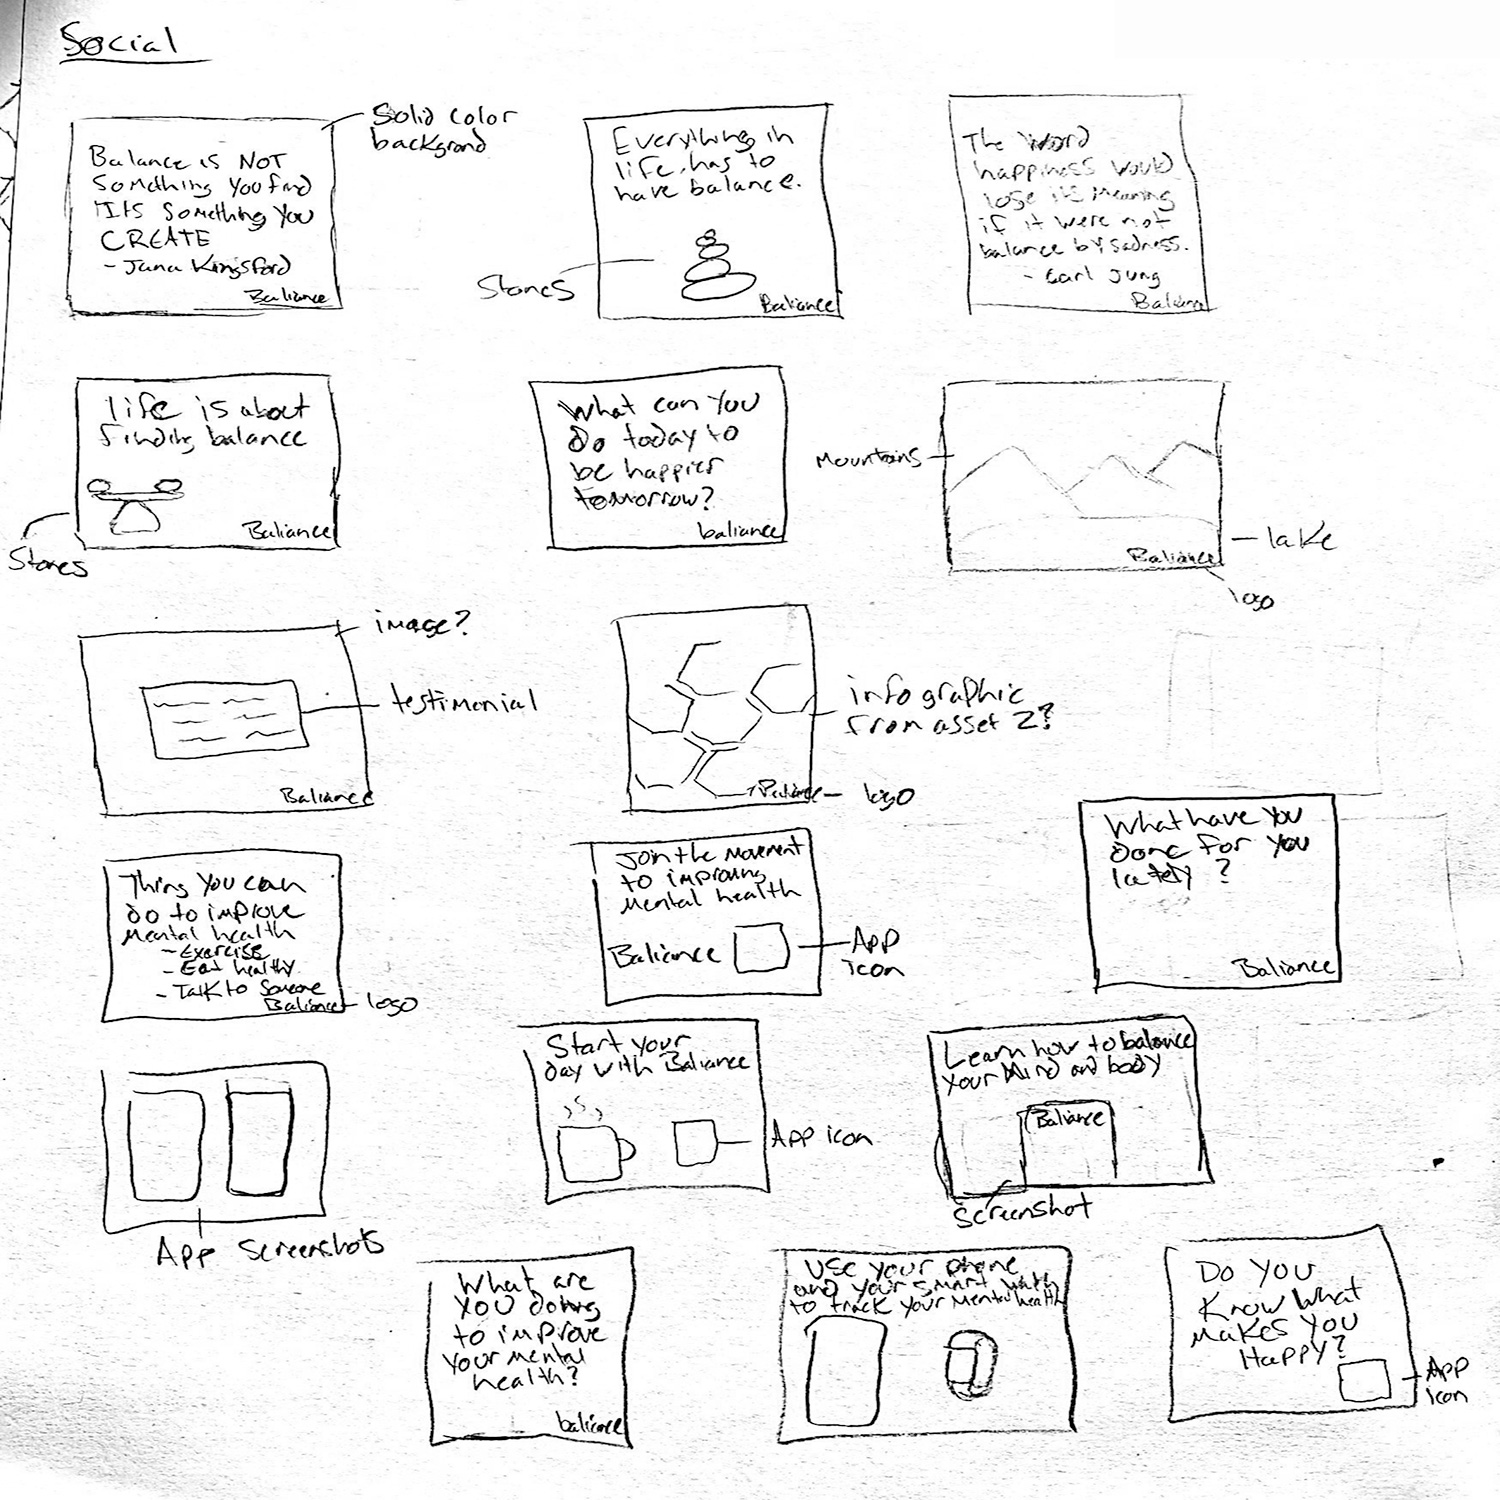 Social
Solid color
backgrond
Balance is NOT
Something You find
ITS Something You
CREATE
- Jana Kingsford
Baliance
Everything in
life has to
have balance.
Stones
Baliance
The Word
happiness would
lose its meaning
if it were not
balance by sadness.
- Carl Jung
Baliance
life is about
finding balance
Stones
Baliance
What can you
do today to
be happier
tomorrow?
baliance
Mountains
lake
Baliance
logo
image?
testimonial
Baliance
infographic
from asset 2?
Baliance
logo
Thing You can
do to improve
Mental health
- Exercise
- Eat healthy
- Talk to Someone
Baliance
logo
Join the Movement
to improving
Mental health
Baliance
App
icon
What have You
done for you
lately ?
Baliance
App Screenshots
Start your
day with Baliance
App icon
Learn how to balance
your Mind and body
Baliance
Screenshot
What are
you doing
to improve
your mental
health?
baliance
USE your phone
and your smart watch
to track your Mental health
Do You
Know What
Makes You
Happy?
App
icon